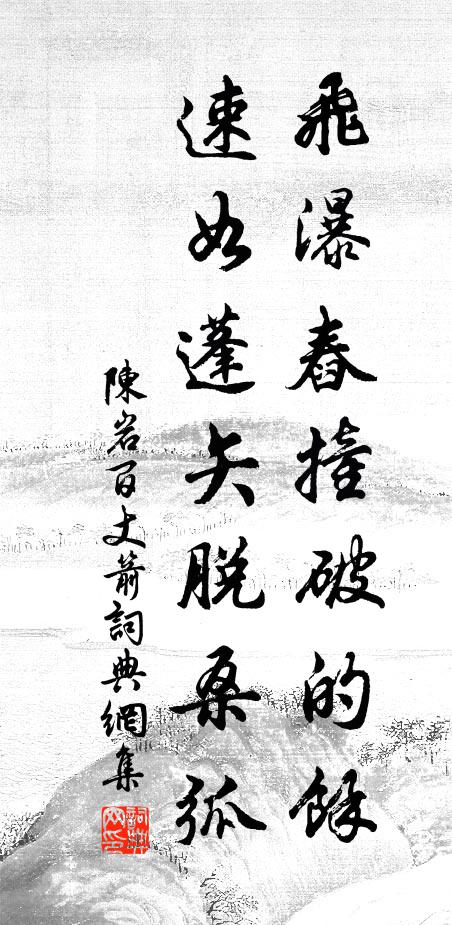 飛瀑舂撞破的餘
速如蓬矢脫桑弧
陳岩百丈箭詞典網集